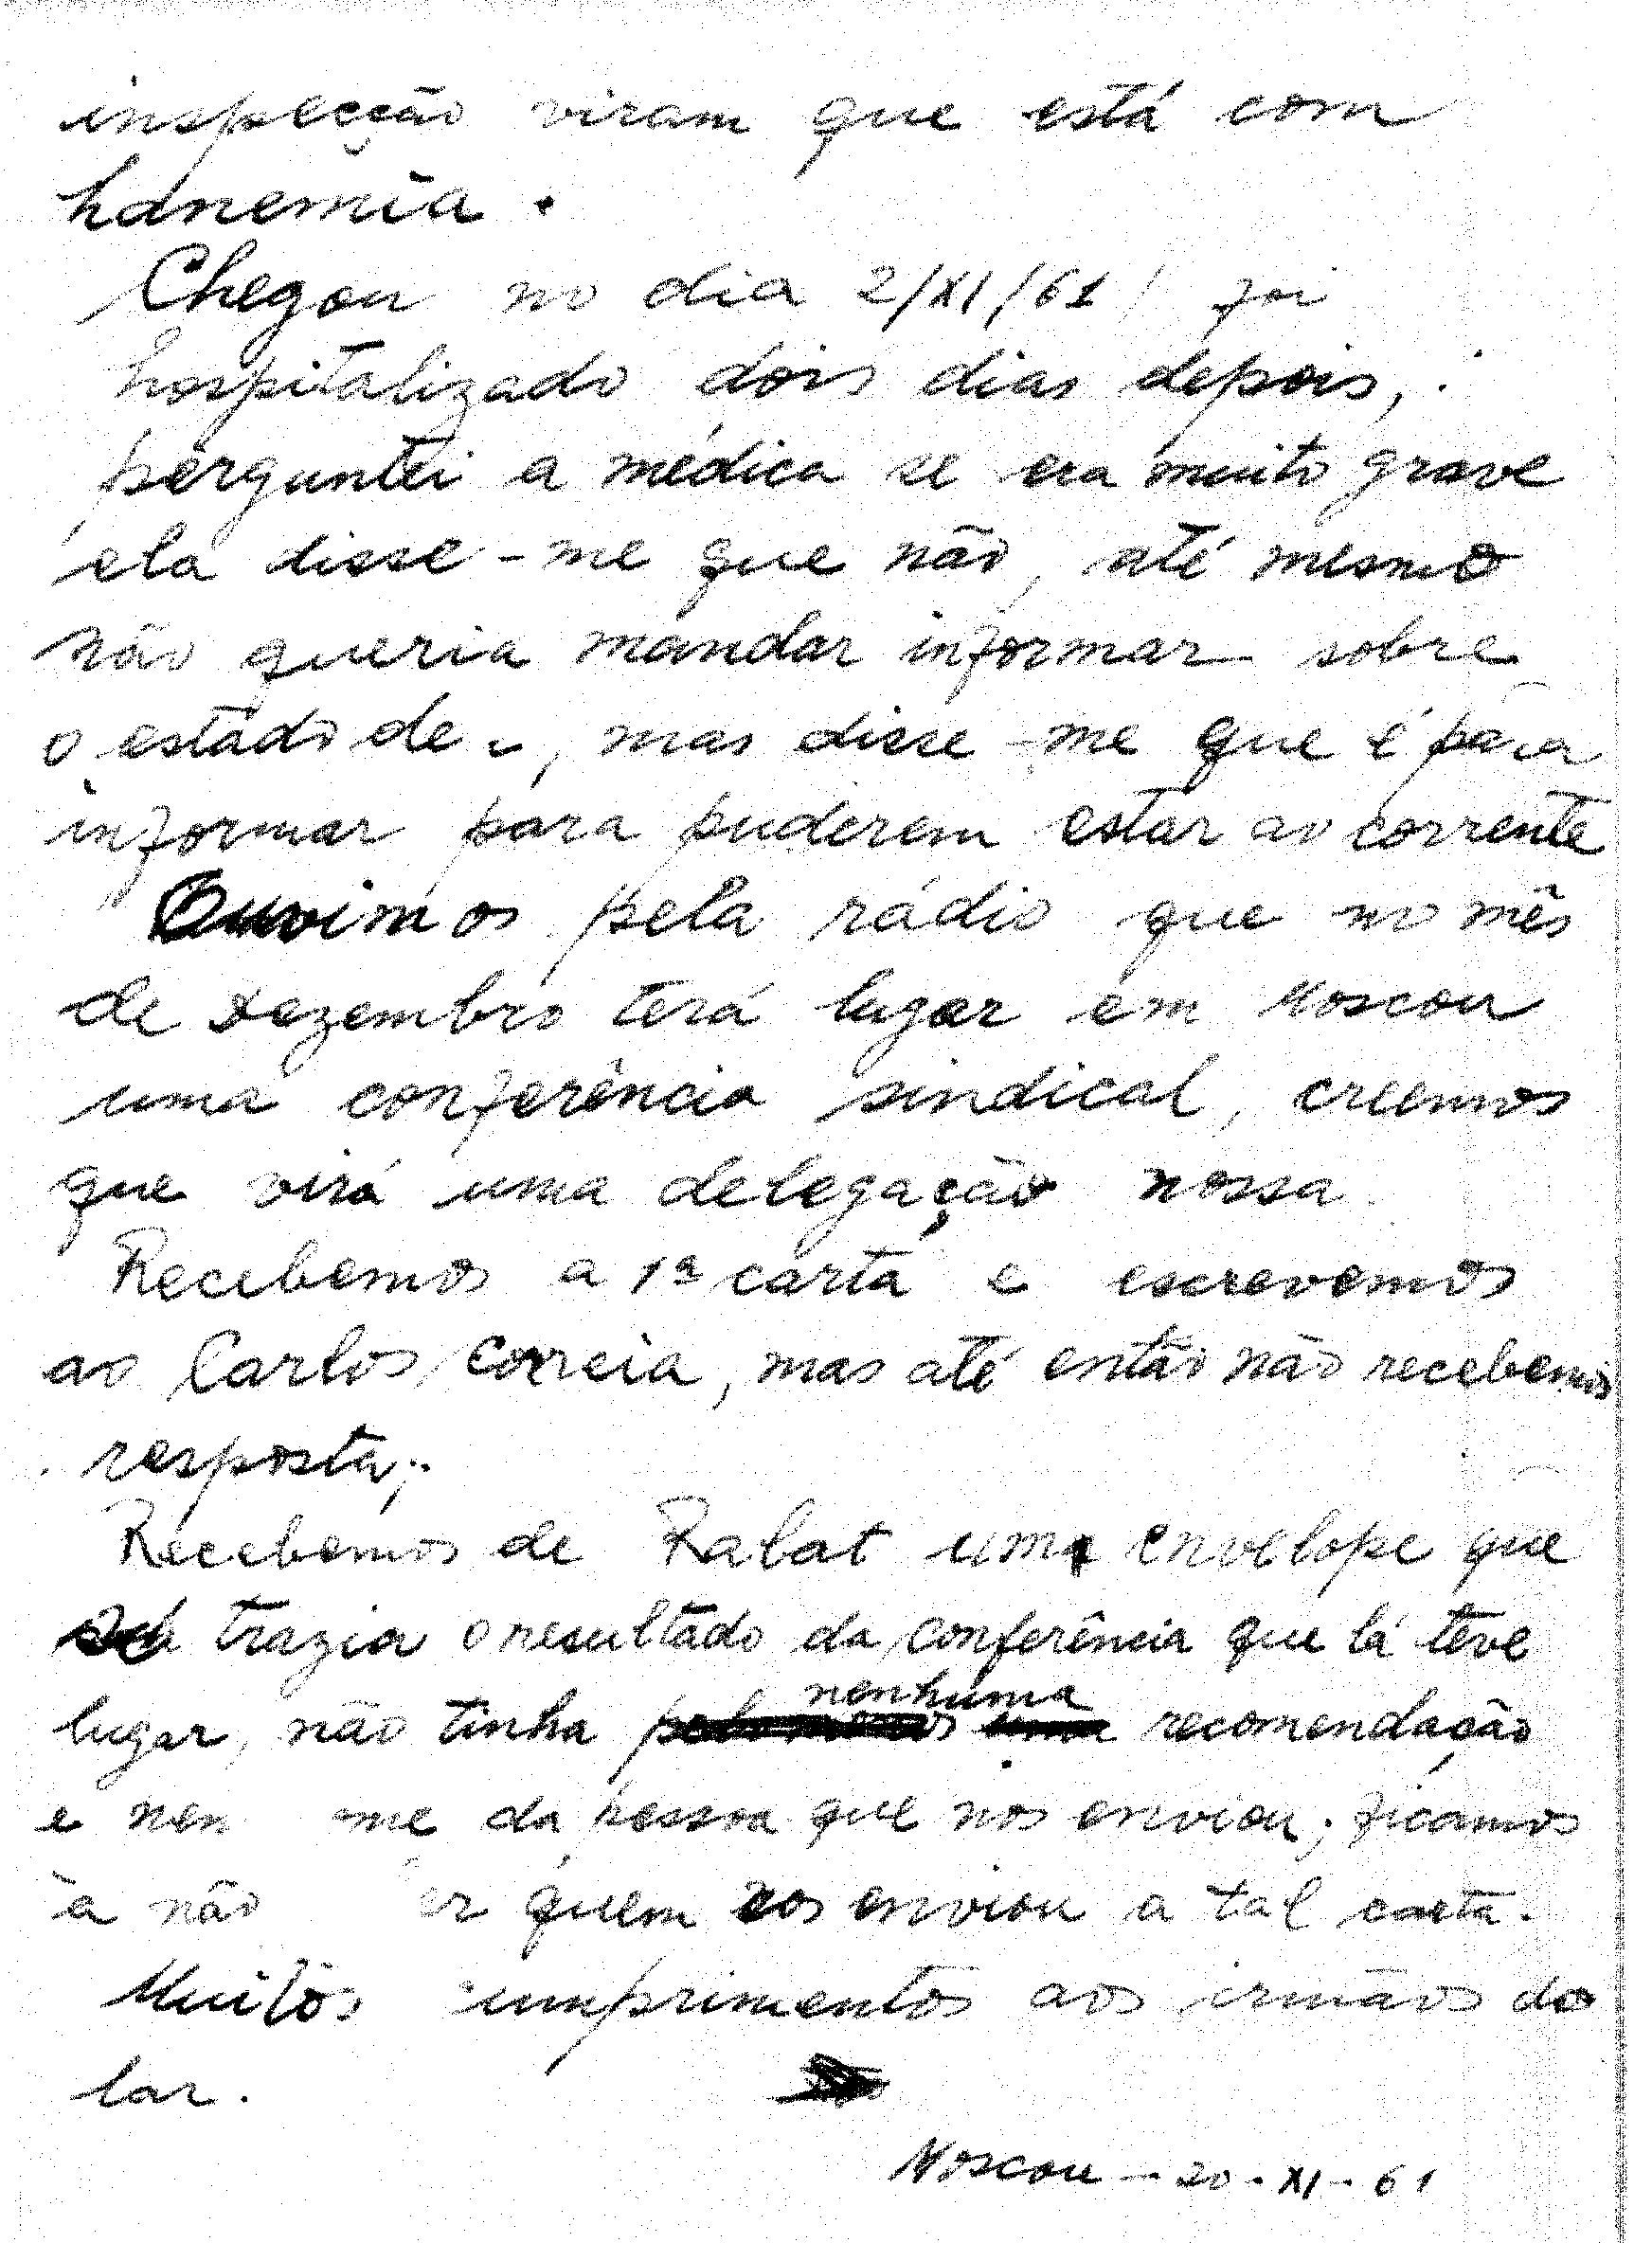 inspecção viram que está com
hanemia.
Chegou no dia 2/XI/61, foi
hospitalizado dois dias depois,
perguntei a médica se era muito grave
ela disse-me que não, até mesmo
não queria mandar informar sobre
o estado dele, mas disse-me que é para
informar para puderem estar ao corrente
Ouvimos pela rádio que no mês
de Dezembro terá lugar em Moscou
uma conferência sindical, creemos
que virá uma delegação nossa
Recebemos a 1ª carta e escrevemos
ao Carlos Correia, mas até então não recebemos
resposta;
Recebemos de Rabat um envelope que
trazia o resultado da conferência que lá teve
lugar, não tinha nenhuma recomendação
e nen me da pessoa que nos enviou; ficamos
à não er quem nos enviou a tal carta.
Muitos umprimentos aos irmãos do
lar.
Moscou - 20-XI-61